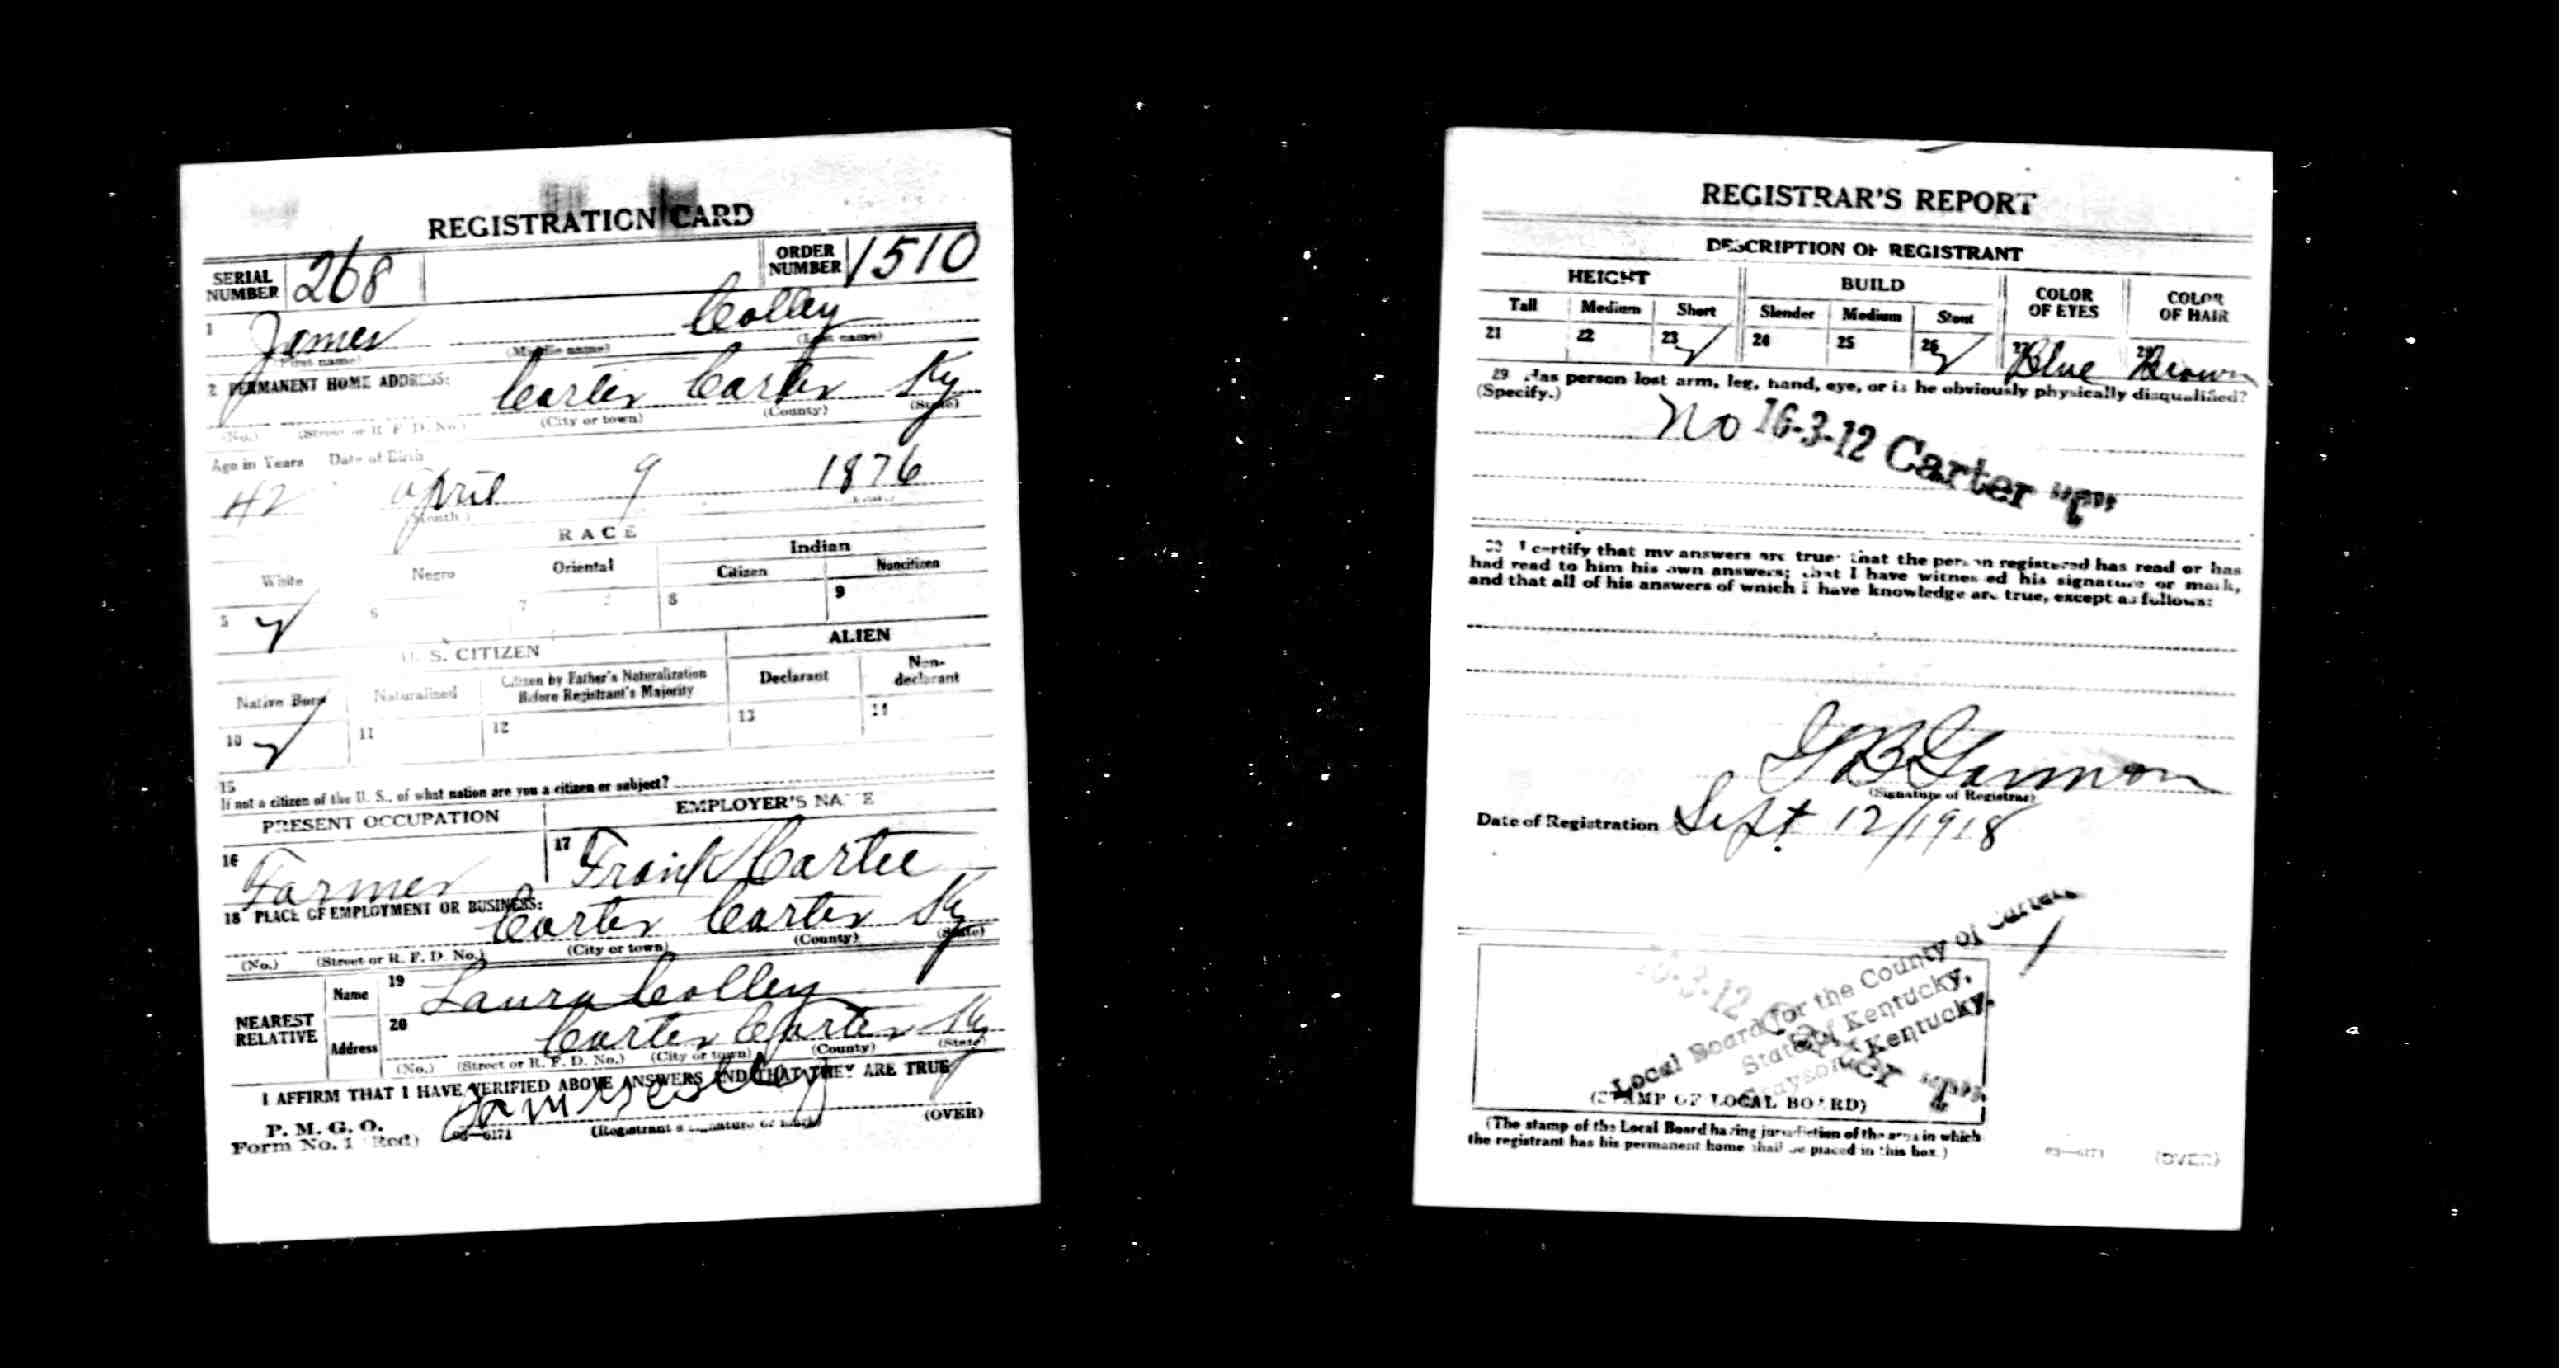 REGISTRATION CARD
SERIAL NUMBER 268 ORDER NUMBER 1510
1 James Colley
(First name) (Middle name) (Last name)
2 PERMANENT HOME ADDRESS:
Carter Carter Ky
(No.) (Street or R. F. D. No.) (City or town) (County) (State)
Age in Years Date of Birth
42 April 9 1876
(Month.)
RACE
White Negro Oriental Indian
Citizen Noncitizen
5 ✓ 6 7 8 9
U. S. CITIZEN ALIEN
Native Born Naturalized Citizen by Father's Naturalization Before Registrant's Majority Declarant Non-declarant
10 ✓ 11 12 13 14
15
If not a citizen of the U. S., of what nation are you a citizen or subject?
PRESENT OCCUPATION EMPLOYER'S NAME
16 Farmer 17 Frank Cartee
18 PLACE OF EMPLOYMENT OR BUSINESS:
Carter Carter Ky
(No.) (Street or R. F. D. No.) (City or town) (County) (State)
NEAREST RELATIVE Name 19 Laura Colley
Address 20 Carter Carter Ky
(No.) (Street or R. F. D. No.) (City or town) (County) (State)
I AFFIRM THAT I HAVE VERIFIED ABOVE ANSWERS AND THAT THEY ARE TRUE
P. M. G. O.
Form No. 1 (Red) 03—6171 (Registrant's signature or mark) (OVER)
REGISTRAR'S REPORT
DESCRIPTION OF REGISTRANT
HEIGHT BUILD COLOR OF EYES COLOR OF HAIR
Tall Medium Short Slender Medium Stout
21 22 23 ✓ 24 25 26 ✓ 27 Blue 28 Brown
29 Has person lost arm, leg, hand, eye, or is he obviously physically disqualified?
(Specify.)
No 16-3-12 Carter "C"
30 I certify that my answers are true; that the person registered has read or has
had read to him his own answers; that I have witnessed his signature or mark,
and that all of his answers of which I have knowledge are true, except as follows:
(Signature of Registrar)
Date of Registration Sept 12/1918
Local Board for the County of Carter
State of Kentucky,
Grayson, Kentucky.
16-3-12 Carter "C"
(STAMP OF LOCAL BOARD)
(The stamp of the Local Board having jurisdiction of the area in which
the registrant has his permanent home shall be placed in this box.)
03—6171 (OVER)